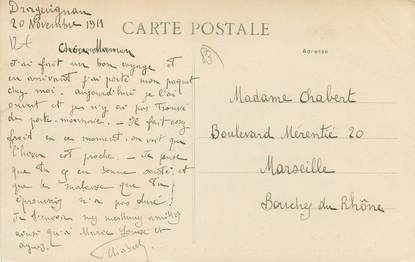 Draguignan
20 Novembre 1911
CARTE POSTALE
Adresse
Chère Maman
J'ai fait un bon voyage et
en arrivant j'ai porté mon paquet
chez moi. aujourd'hui je l'ai
ouvert et je n'y ai pas trouvé
de porte-monnaie. — Il fait assez
froid en ce moment. on voit que
l'hiver est proche. — Je pense
que tu es en bonne santé et
que le malaise que tu
éprouvais n'a pas duré.
Je t'envoie mes meilleurs amitiés
ainsi qu'à Marie Louise et
Chabert
Madame Chabert
Boulevard Mérentié 20
Marseille
Bouches du Rhône